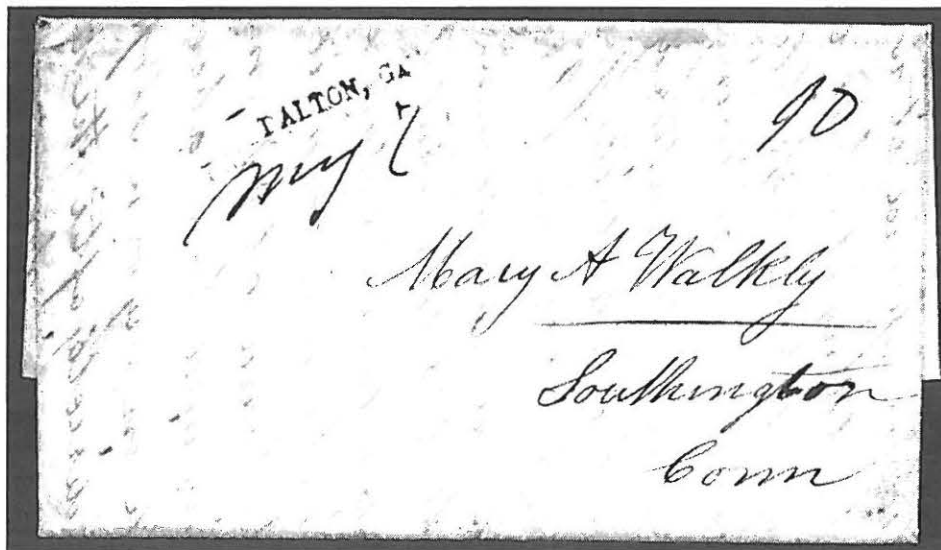 DALTON, GA
May 7
10
Mary A Walkly
Southington
Conn